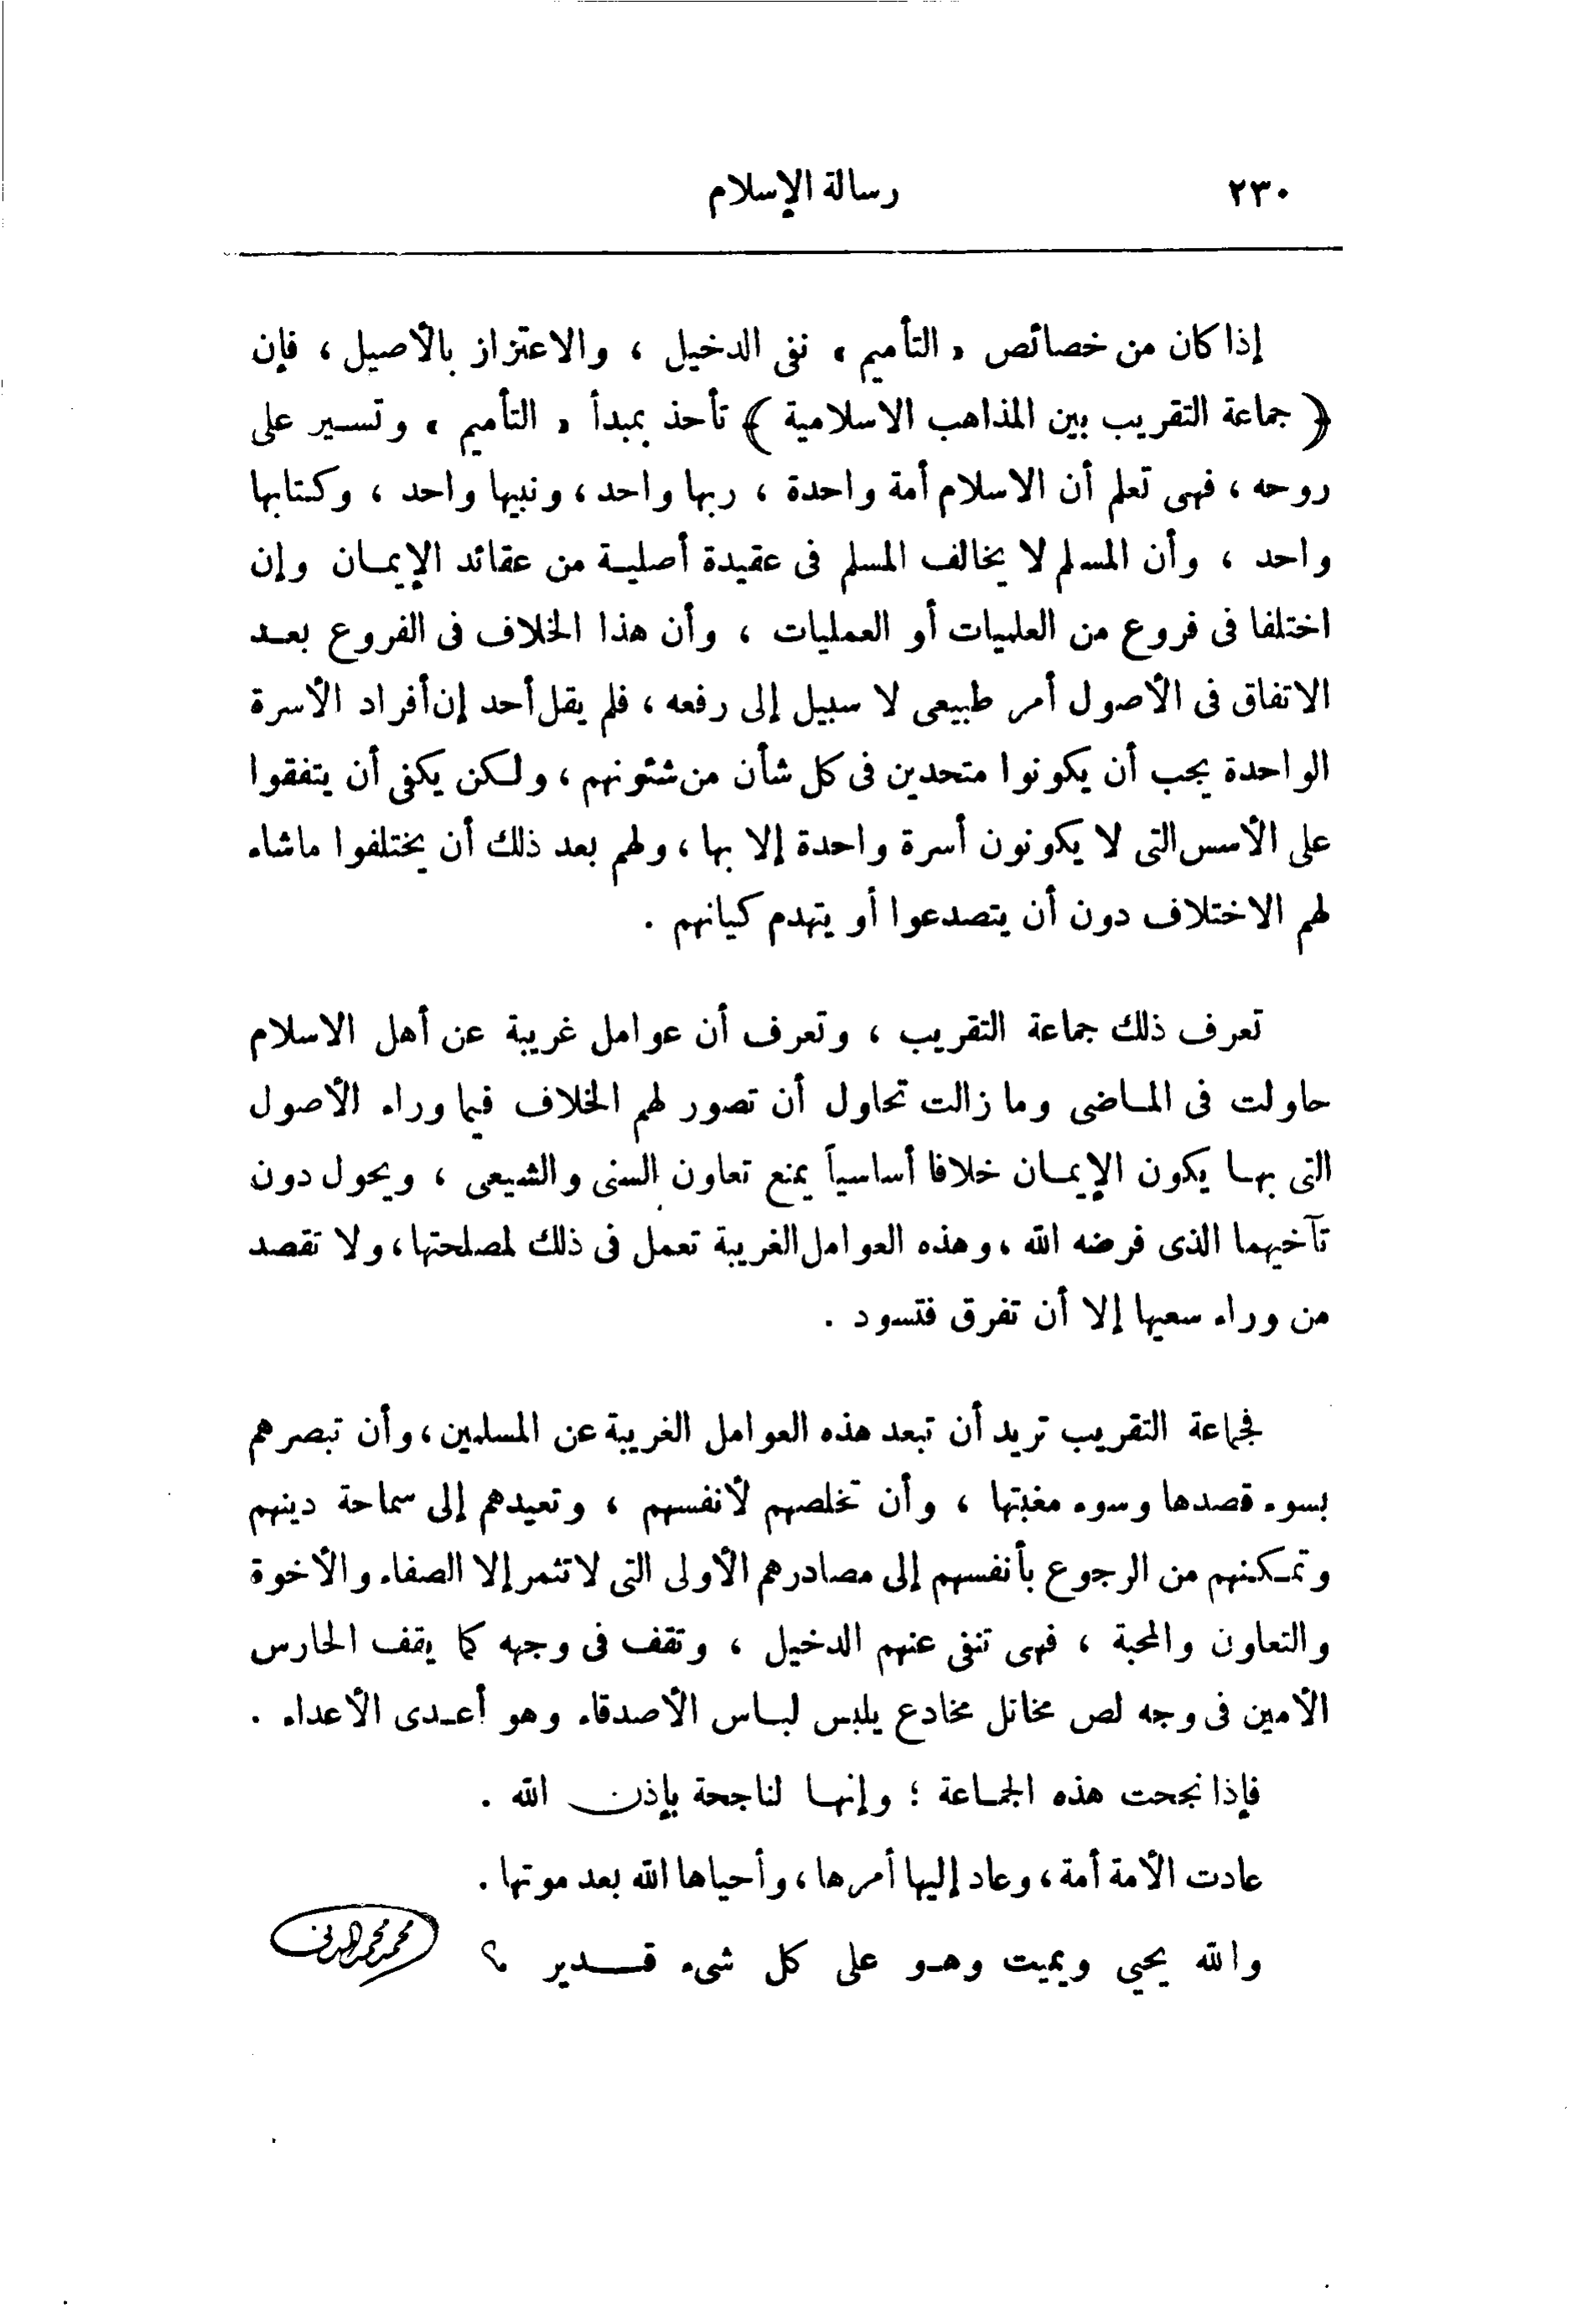 ٢٣٠ رسالة الإسلام
إذا كان من خصائص « التأميم » نفى الدخيل ، والاعتزاز بالأصيل ، فإن
﴿ جماعة التقريب بين المذاهب الاسلامية ﴾ تأخذ بمبدأ « التأميم » وتسير على
روحه ، فهى تعلم أن الاسلام أمة واحدة ، ربها واحد ، ونبيها واحد ، وكتابها
واحد ، وأن المسلم لا يخالف المسلم فى عقيدة أصلية من عقائد الإيمان وإن
اختلفا فى فروع من العلميات أو العمليات ، وأن هذا الخلاف فى الفروع بعد
الاتفاق فى الأصول أمر طبيعى لا سبيل إلى رفعه ، فلم يقل أحد إن أفراد الأسرة
الواحدة يجب أن يكونوا متحدين فى كل شأن من شئونهم ، ولكن يكفى أن يتفقوا
على الأسس التى لا يكونون أسرة واحدة إلا بها ، ولهم بعد ذلك أن يختلفوا ماشاء
لهم الاختلاف دون أن يتصدعوا أو يتهدم كيانهم .
تعرف ذلك جماعة التقريب ، وتعرف أن عوامل غريبة عن أهل الاسلام
حاولت فى الماضى وما زالت تحاول أن تصور لهم الخلاف فيما وراء الأصول
التى بها يكون الإيمان خلافا أساسياً يمنع تعاون السنى والشيعى ، ويحول دون
تآخيهما الذى فرضه الله ، وهذه العوامل الغريبة تعمل فى ذلك لمصلحتها ، ولا تقصد
من وراء سعيها إلا أن تفرق فتسود .
فجماعة التقريب تريد أن تبعد هذه العوامل الغريبة عن المسلمين ، وأن تبصرهم
بسوء قصدها وسوء مغبتها ، وأن تخلصهم لأنفسهم ، وتعيدهم إلى سماحة دينهم
وتمكنهم من الرجوع بأنفسهم إلى مصادرهم الأولى التى لا تثمر إلا الصفاء والأخوة
والتعاون والمحبة ، فهى تنفى عنهم الدخيل ، وتقف فى وجهه كما يقف الحارس
الأمين فى وجه لص مخاتل مخادع يلبس لباس الأصدقاء وهو أعدى الأعداء .
فإذا نجحت هذه الجماعة ؛ وإنها لناجحة بإذن الله .
عادت الأمة أمة ، وعاد إليها أمرها ، وأحياها الله بعد موتها .
والله يحيي ويميت وهو على كل شىء قدير ؟ محمد محمد المدنى